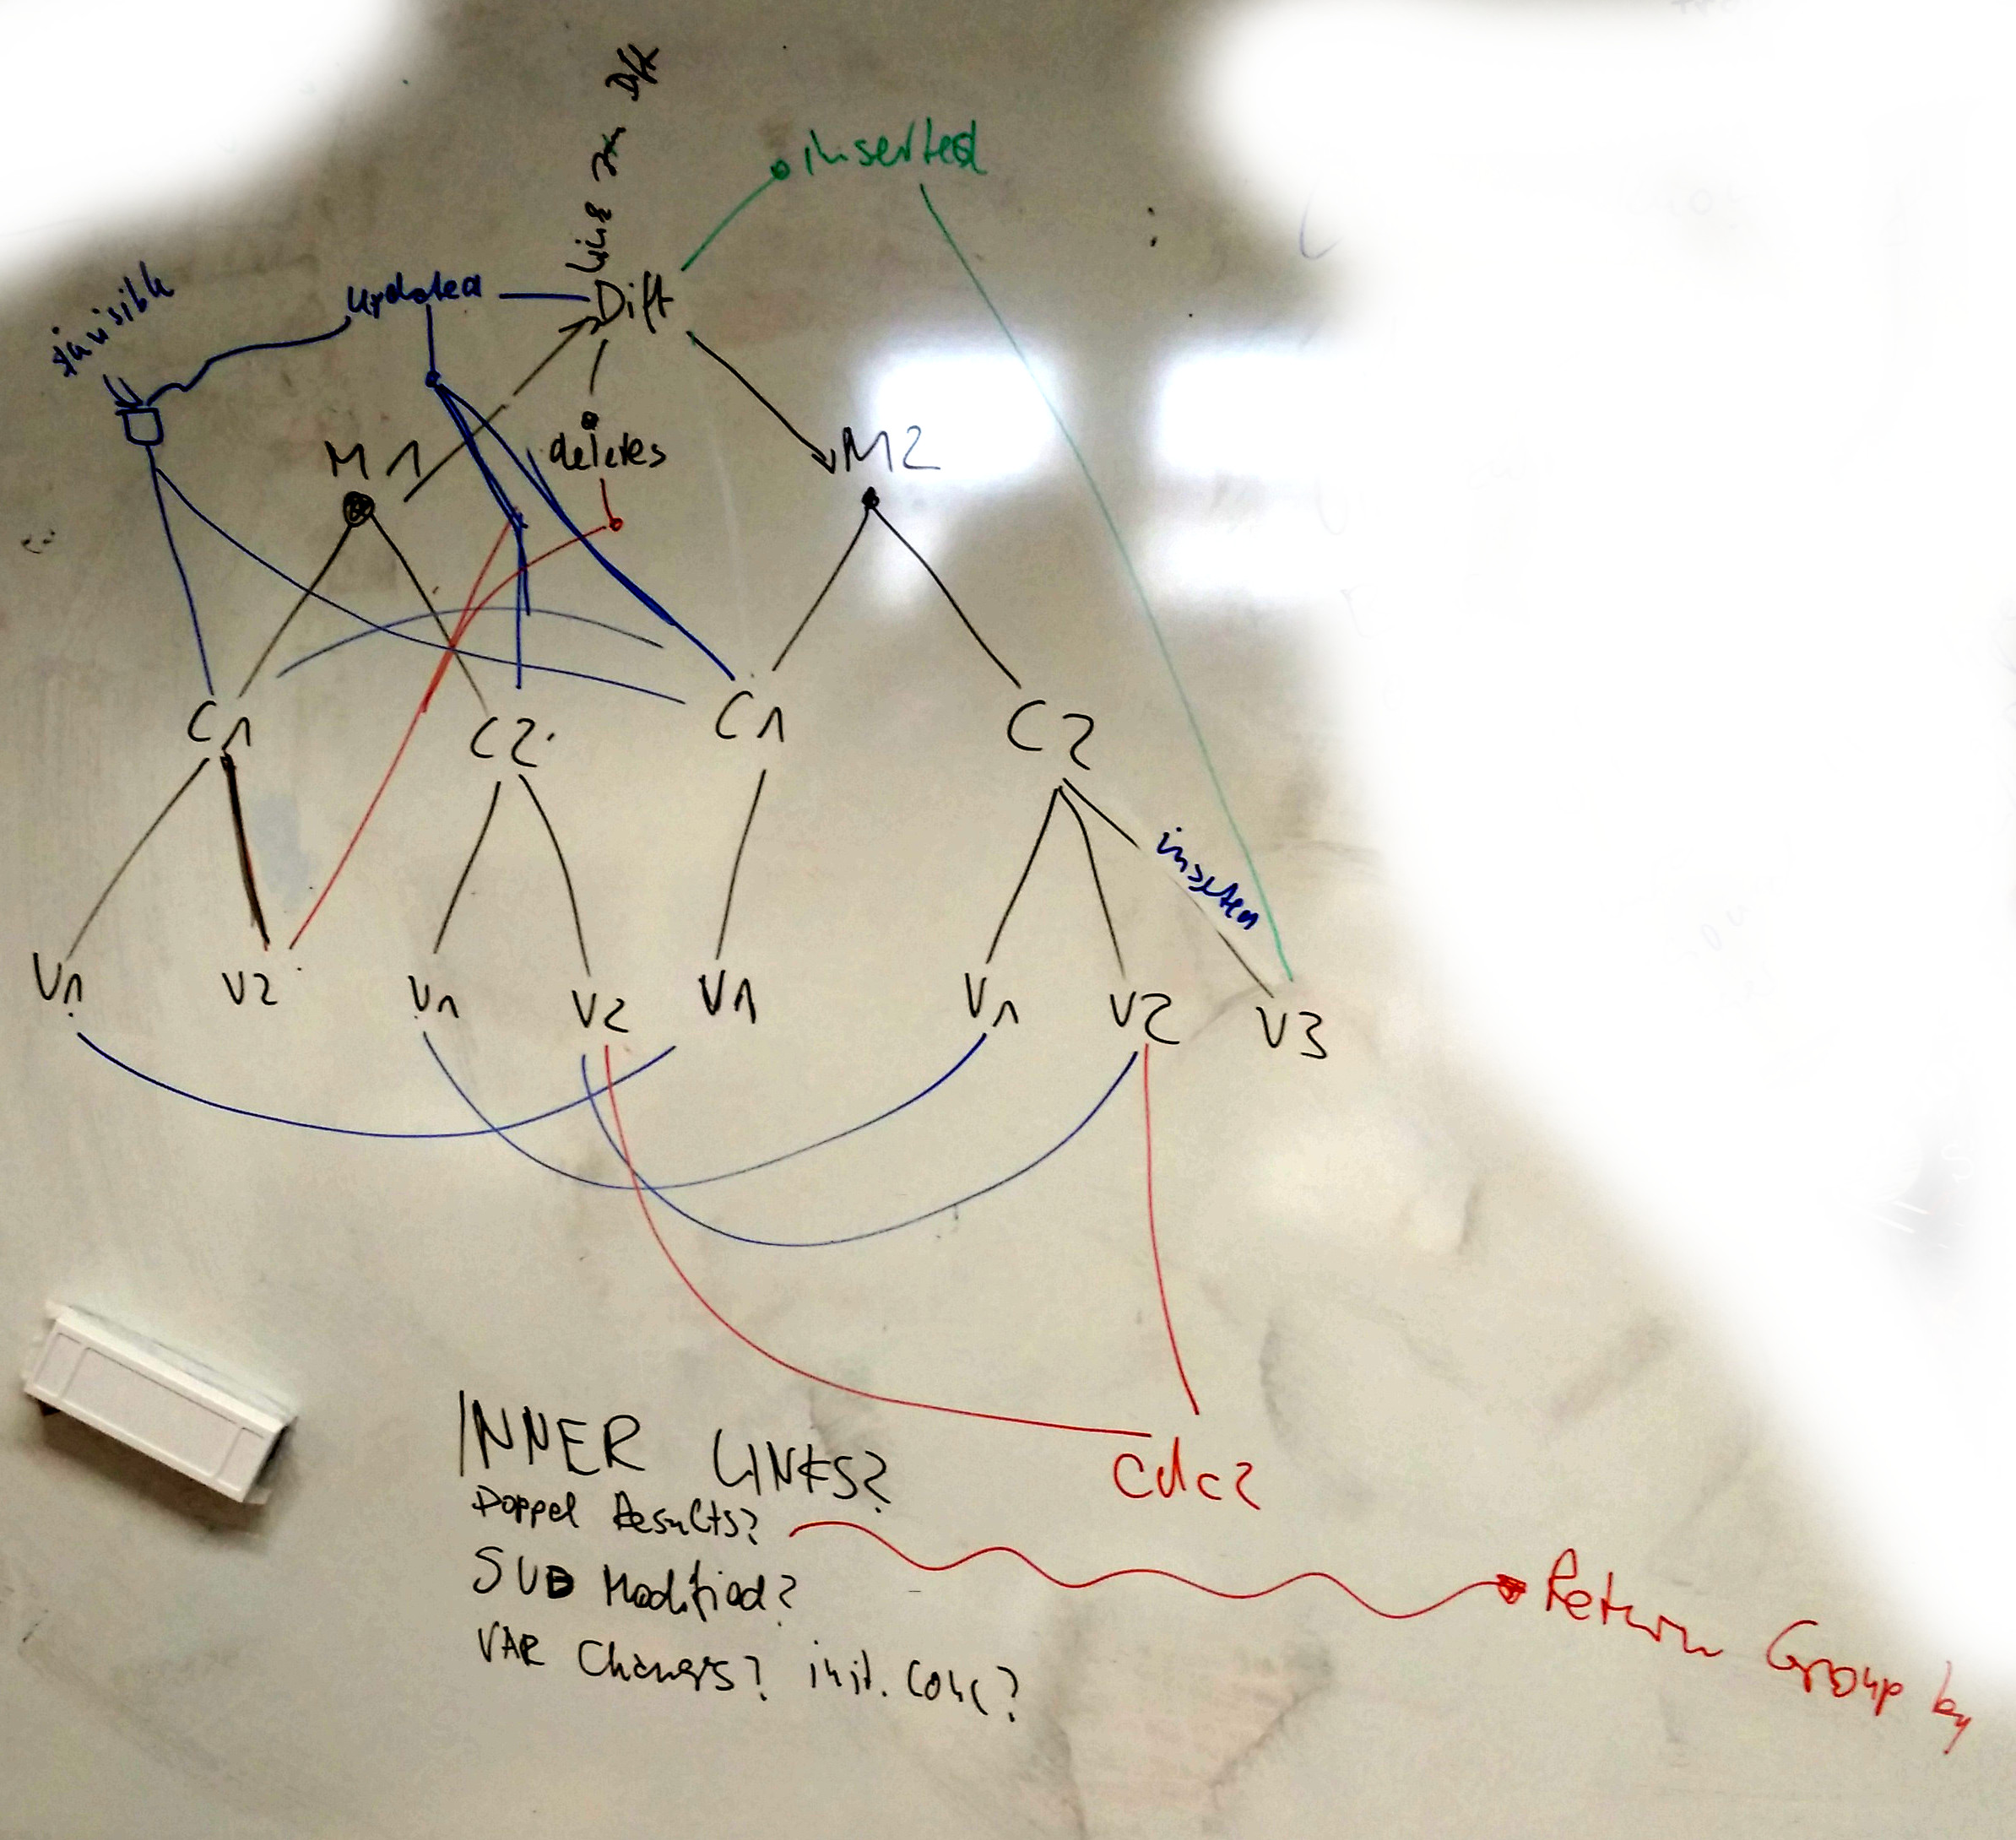 Link zum Diff
inserted
invisible
updated
Diff
M1
deletes
M2
C1
C2
C1
C2
inserted
V1
V2
V1
V2
V1
V1
V2
V3
cdc2
INNER LINKS?
Doppel Results?
SUB Modified?
Return Group by
VAR Changes? init. conc?